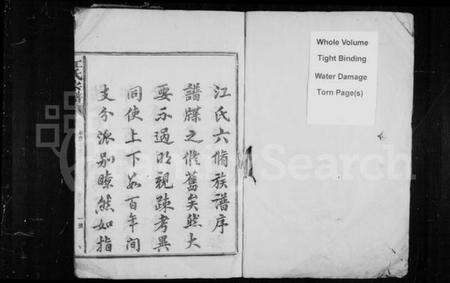 江氏六脩族譜序
譜牒之脩舊矣然大
要不過明親疎考異
同使上下數百年間
支分派別瞭然如指
Whole Volume
Tight Binding
Water Damage
Torn Page(s)